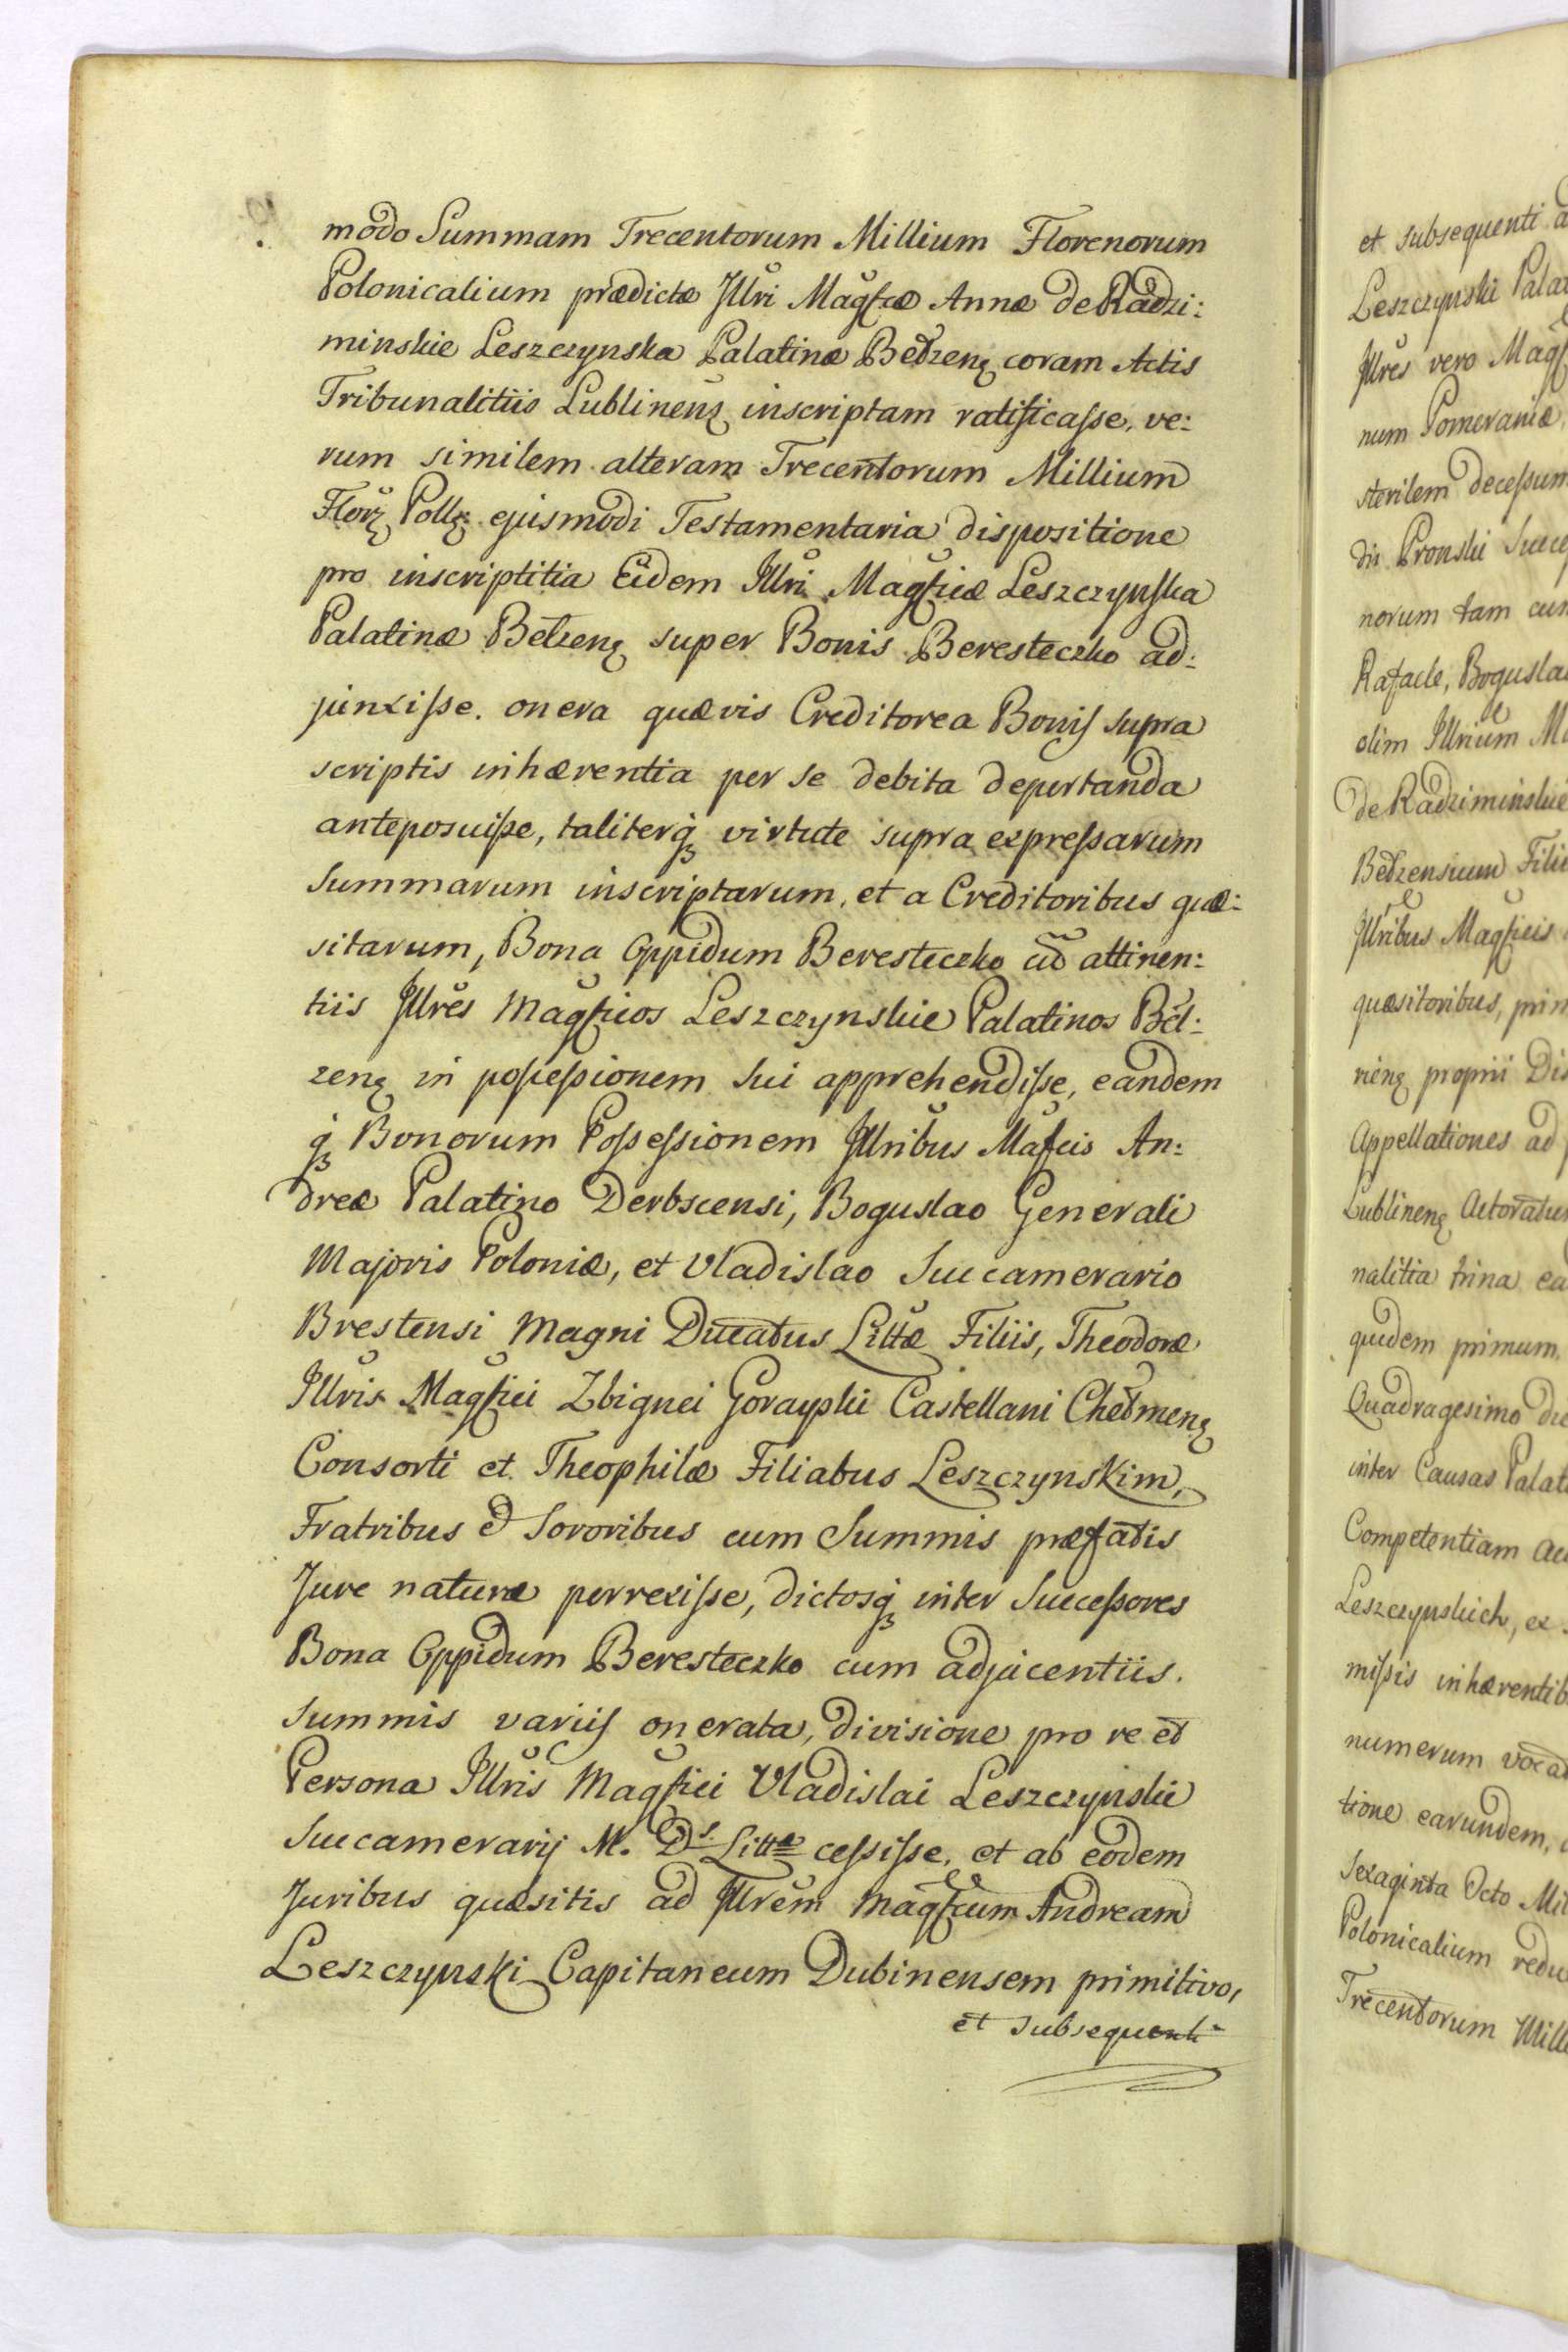 modo Summam Trecentorum Millium Florenorum
Polonicalium prædictæ Jllri Magfcæ Annæ de Radzi:
minskie Leszczynska Palatinæ Bełzenꝫ coram Actis
Tribunalitiis Lublinenꝫ inscriptam ratificaſse, ve:
rum similem alteram Trecentorum Millium
Florꝫ Pollꝫ ejusmodi Testamentaria dispositione
pro inscriptitia Eidem Jllri Magficæ Leszczynska
Palatinæ Belzenꝫ super Bonis Beresteczko ad:
junxiſse. onera quævis Creditorea Bonis supra
scriptis inhærentia per se debita deportanda
anteposuiſse, taliterqꝫ virtute supra expreſsarum
Summarum inscriptarum, et a Creditoribus quæ:
sitarum, Bona Oppidum Beresteczko cū attinen:
tiis Jllres Magficos Leszczynskie Palatinos Beł:
zenꝫ in poſseſsionem sui apprehendiſse, eandem
qꝫ Bonorum Poſseſsionem Jllribus Mafcis An:
dreæ Palatino Derbscensi, Boguslao Generali
Majoris Poloniæ, et Vladislao Succamerario
Brestensi Magni Ducatus Littæ Filiis, Theodoræ
Jllris Magfici Zbignei Gorayski Castellani Chełmenꝫ
Consorti et Theophilæ Filiabus Leszczynskim,
Fratribus et Sororibus cum Summis præfatis
Jure naturæ perrexiſse, dictosqꝫ inter Succeſsores
Bona Oppidum Beresteczko cum adjacentiis.
Summis variis onerata, divisione pro re et
Persona Jllris Magfici Vladislai Leszczynskie
Succamerarij M. Ds. Littæ ceſsiſse, et ab eodem
Juribus quæsitis ad Jllrem Magfcum Andream
Leszczynski Capitaneum Dubinensem primitivo,
et subsequenti
et subsequenti
Leszczynski
Jllres vero
num Pomeraniæ
sterilem deceſsum
dis Pronski
norum tam
Rafaele,
olim Jllrium
de Radziminskie
Bełzensium
Jllribus Magficis
quæsitoribus,
rienꝫ proprii
Appellationes ad
Lublinenꝫ
nalitia trina
quidem primum
Quadragesimo
inter Causas
Competentiam
Leszczynskich, ex
miſsis
numerum
tione earundem,
Sexaginta Octo
Polonicalium
Trecentorum